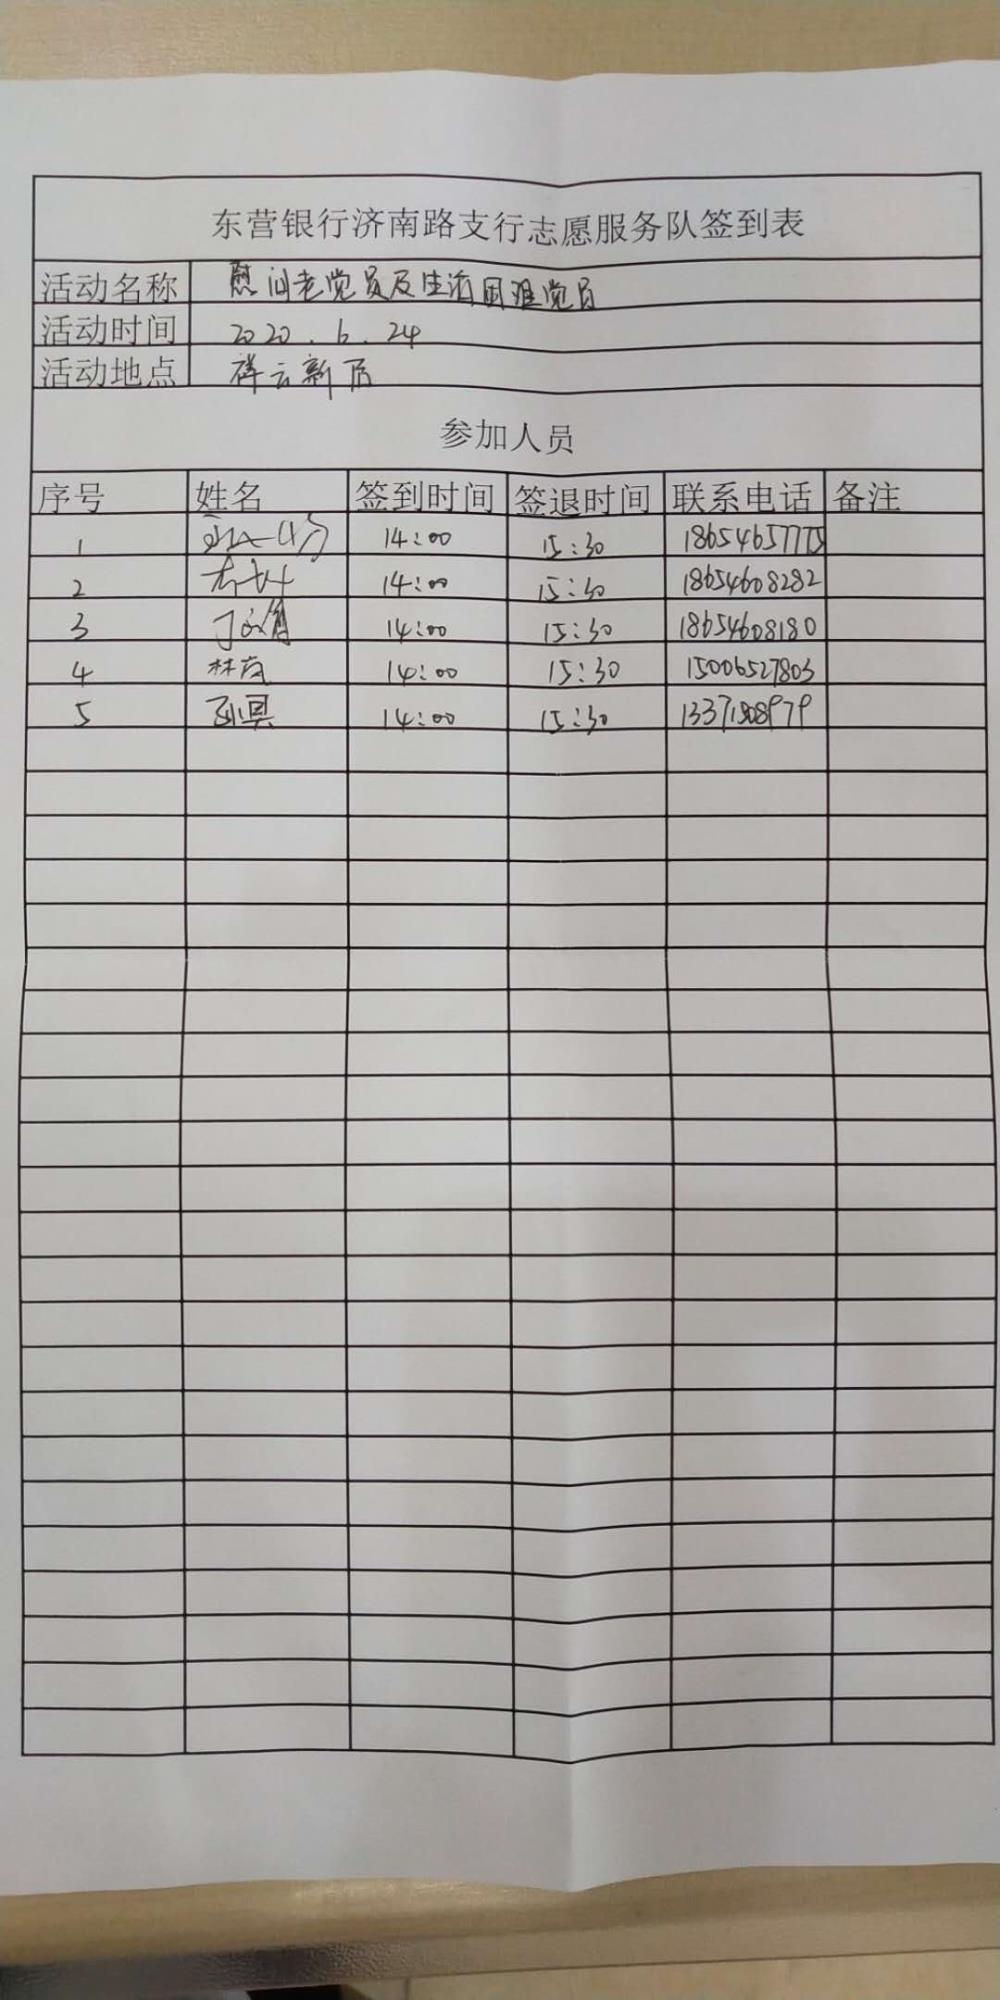 东营银行济南路支行志愿服务队签到表
活动名称 慰问老党员及生活困难党员
活动时间 2020.6.24
活动地点 祥云新居
参加人员
序号 姓名 签到时间 签退时间 联系电话 备注
1 14:00 15:30 18654657775
2 14:00 15:30 18654608282
3 14:00 15:30 18654608180
4 林岚 14:00 15:30 15006527803
5 14:00 15:30 13371508979